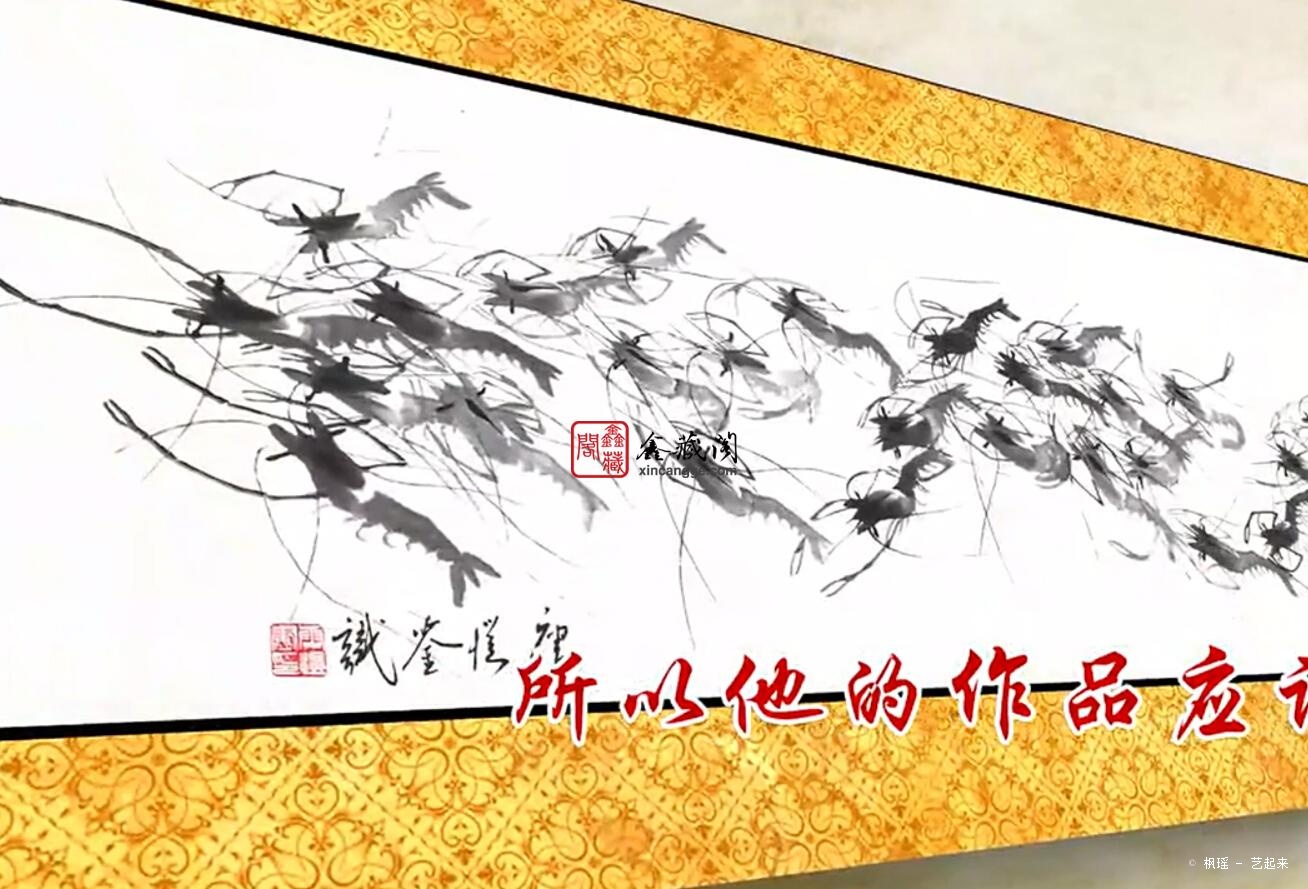 鑫藏阁
鑫藏閣
xincangge.com
識鉴
所以他的作品应该
© 枫瑶 - 艺起来